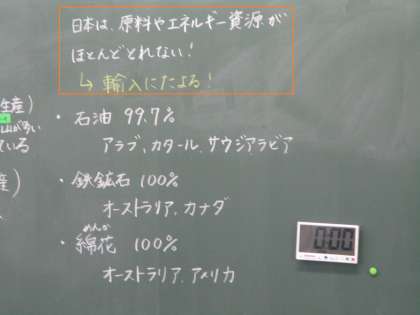 日本は、原料やエネルギー資源が
ほとんどとれない!
↳ 輸入にたよる!
生産)
・石油 99.7%
アラブ、カタール、サウジアラビア
ている
産)
・鉄鉱石 100%
オーストラリア、カナダ
めんか
・綿花 100%
オーストラリア、アメリカ
0:00